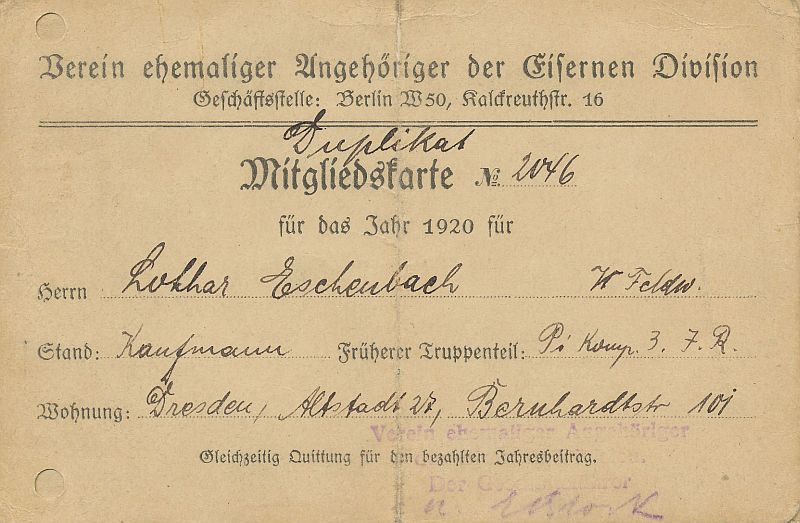 Verein ehemaliger Angehöriger der Eisernen Division
Geschäftsstelle: Berlin W50, Kalckreuthstr. 16
Duplikat
Mitgliedskarte № 2046
für das Jahr 1920 für
Herrn Lothar Eschenbach W Feldw.
Stand: Kaufmann Früherer Truppenteil: Pi Komp. 3. J. R.
Wohnung: Dresden, Altstadt 27, Bernhardtstr 101
Verein ehemaliger Angehöriger
Gleichzeitig Quittung für den bezahlten Jahresbeitrag.
Der Geschäftsführer